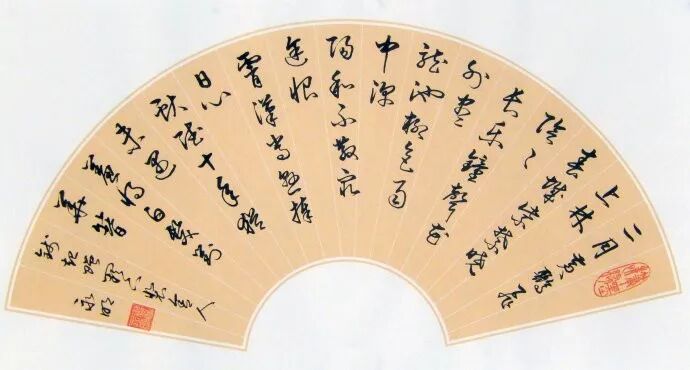 二月黄鸝飛
上林
春城紫禁曉
陰々
長樂鐘聲花
外盡
龍池柳色雨
中深
陽和不散窮
途恨
霄漢常懸捧
日心
獻賦十年猶
未遇
羞將白髮對
華簪
錢起贈闕下裴舍人
永明